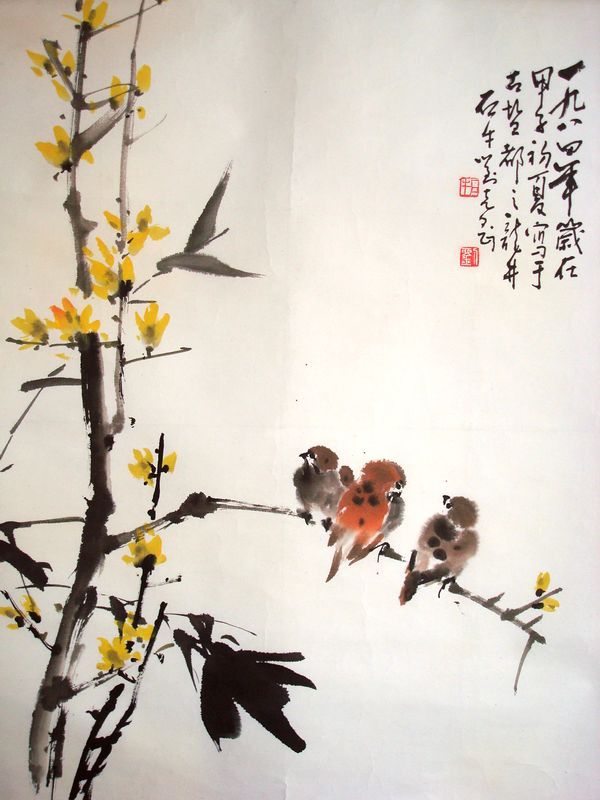 一九八四年歲在
甲子初夏寫于
古盐都之龍井
石牛